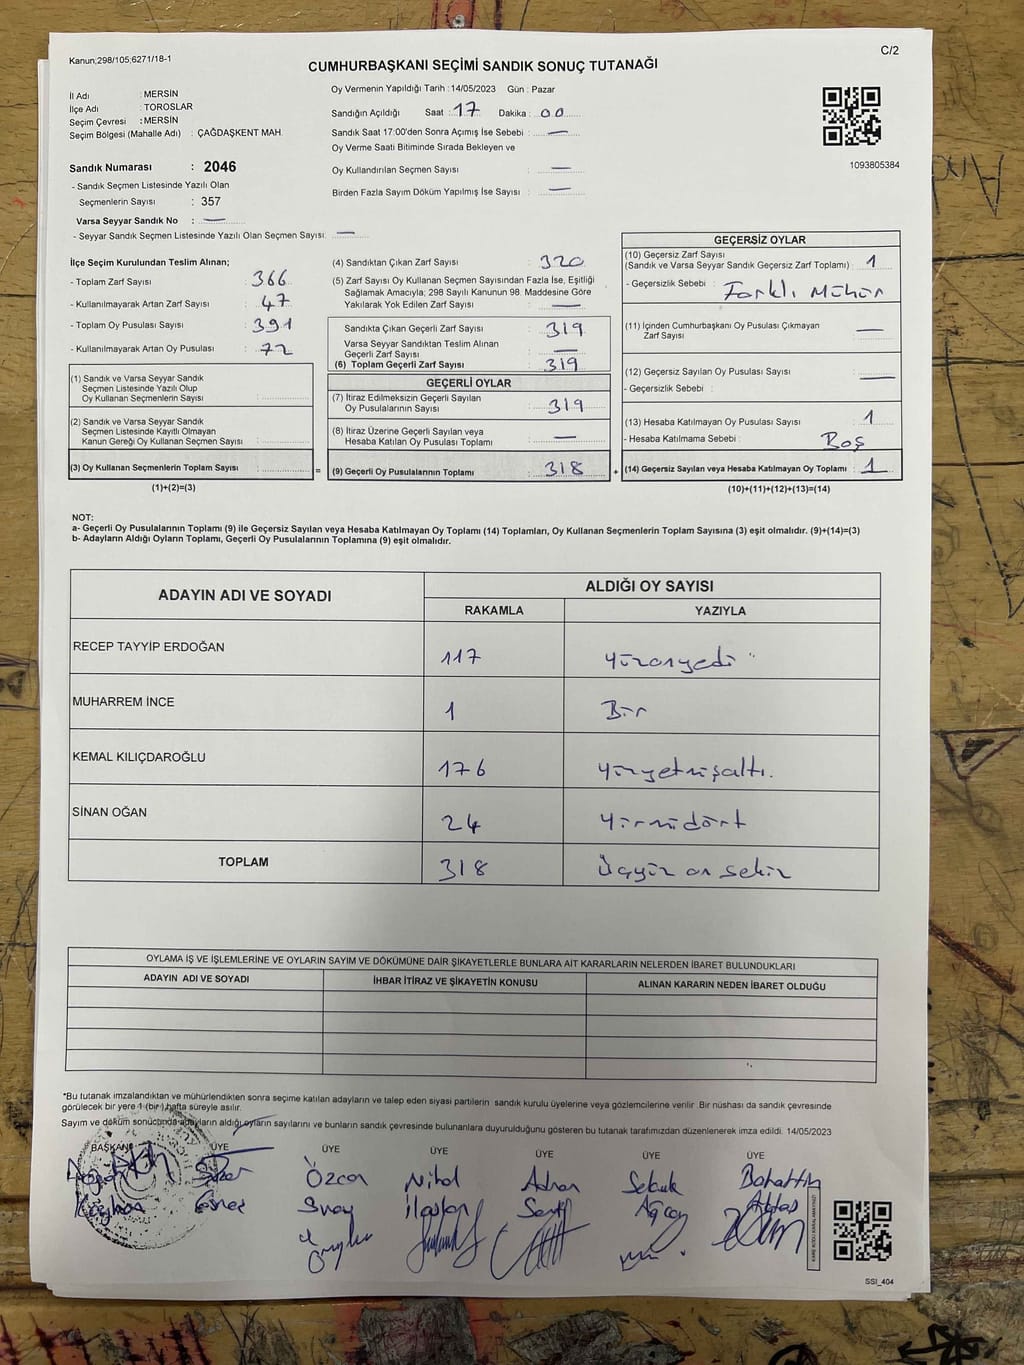 Kanun;298/105,6271/18-1
C/2
CUMHURBAŞKANI SEÇİMİ SANDIK SONUÇ TUTANAĞI
İl Adı : MERSİN
İlçe Adı : TOROSLAR
Seçim Çevresi : MERSİN
Seçim Bölgesi (Mahalle Adı) : ÇAĞDAŞKENT MAH.
Oy Vermenin Yapıldığı Tarih : 14/05/2023 Gün : Pazar
Sandığın Açıldığı Saat : 17 Dakika : 00
Sandık Saat 17:00'den Sonra Açımış İse Sebebi : —
Oy Verme Saati Bitiminde Sırada Bekleyen ve
Oy Kullandırılan Seçmen Sayısı : —
Birden Fazla Sayım Döküm Yapılmış İse Sayısı : —
1093805384
Sandık Numarası : 2046
- Sandık Seçmen Listesinde Yazılı Olan
Seçmenlerin Sayısı : 357
Varsa Seyyar Sandık No : —
- Seyyar Sandık Seçmen Listesinde Yazılı Olan Seçmen Sayısı: —
İlçe Seçim Kurulundan Teslim Alınan;
- Toplam Zarf Sayısı : 366
- Kullanılmayarak Artan Zarf Sayısı : 47
- Toplam Oy Pusulası Sayısı : 391
- Kullanılmayarak Artan Oy Pusulası : 72
(1) Sandık ve Varsa Seyyar Sandık
Seçmen Listesinde Yazılı Olup
Oy Kullanan Seçmenlerin Sayısı :
(2) Sandık ve Varsa Seyyar Sandık
Seçmen Listesinde Kayıtlı Olmayan
Kanun Gereği Oy Kullanan Seçmen Sayısı :
(3) Oy Kullanan Seçmenlerin Toplam Sayısı : =
(1)+(2)=(3)
(4) Sandıktan Çıkan Zarf Sayısı : 320
(5) Zarf Sayısı Oy Kullanan Seçmen Sayısından Fazla İse, Eşitliği
Sağlamak Amacıyla; 298 Sayılı Kanunun 98. Maddesine Göre
Yakılarak Yok Edilen Zarf Sayısı : —
Sandıkta Çıkan Geçerli Zarf Sayısı : 319
Varsa Seyyar Sandıktan Teslim Alınan
Geçerli Zarf Sayısı : —
(6) Toplam Geçerli Zarf Sayısı : 319
GEÇERLİ OYLAR
(7) İtiraz Edilmeksizin Geçerli Sayılan
Oy Pusulalarının Sayısı : 319
(8) İtiraz Üzerine Geçerli Sayılan veya
Hesaba Katılan Oy Pusulası Toplamı : —
(9) Geçerli Oy Pusulalarının Toplamı : 318 +
GEÇERSİZ OYLAR
(10) Geçersiz Zarf Sayısı
(Sandık ve Varsa Seyyar Sandık Geçersiz Zarf Toplamı) : 1
- Geçersizlik Sebebi : Farklı Mühür
(11) İçinden Cumhurbaşkanı Oy Pusulası Çıkmayan
Zarf Sayısı : —
(12) Geçersiz Sayılan Oy Pusulası Sayısı : —
- Geçersizlik Sebebi :
(13) Hesaba Katılmayan Oy Pusulası Sayısı : 1
- Hesaba Katılmama Sebebi : Boş
(14) Geçersiz Sayılan veya Hesaba Katılmayan Oy Toplamı : 1
(10)+(11)+(12)+(13)=(14)
NOT:
a- Geçerli Oy Pusulalarının Toplamı (9) ile Geçersiz Sayılan veya Hesaba Katılmayan Oy Toplamı (14) Toplamları, Oy Kullanan Seçmenlerin Toplam Sayısına (3) eşit olmalıdır. (9)+(14)=(3)
b- Adayların Aldığı Oyların Toplamı, Geçerli Oy Pusulalarının Toplamına (9) eşit olmalıdır.
ADAYIN ADI VE SOYADI
ALDIĞI OY SAYISI
RAKAMLA YAZIYLA
RECEP TAYYİP ERDOĞAN 117 Yüzonyedi
MUHARREM İNCE 1 Bir
KEMAL KILIÇDAROĞLU 176 Yüzyetmişaltı.
SİNAN OĞAN 24 Yirmidört
TOPLAM 318 Üçyüz on sekiz
OYLAMA İŞ VE İŞLEMLERİNE VE OYLARIN SAYIM VE DÖKÜMÜNE DAİR ŞİKAYETLERLE BUNLARA AİT KARARLARIN NELERDEN İBARET BULUNDUKLARI
ADAYIN ADI VE SOYADI İHBAR İTİRAZ VE ŞİKAYETİN KONUSU ALINAN KARARIN NEDEN İBARET OLDUĞU
*Bu tutanak imzalandıktan ve mühürlendikten sonra seçime katılan adayların ve talep eden siyasi partilerin sandık kurulu üyelerine veya gözlemcilerine verilir. Bir nüshası da sandık çevresinde
görülecek bir yere 1 (bir) hafta süreyle asılır.
Sayım ve döküm sonucunda adayların aldığı oyların sayılarını ve bunların sandık çevresinde bulunanlara duyurulduğunu gösteren bu tutanak tarafımızdan düzenlenerek imza edildi. 14/05/2023
BAŞKAN ÜYE ÜYE ÜYE ÜYE ÜYE ÜYE
Özcan Nihal Adnan Selcuk Bahattin
SSI_404